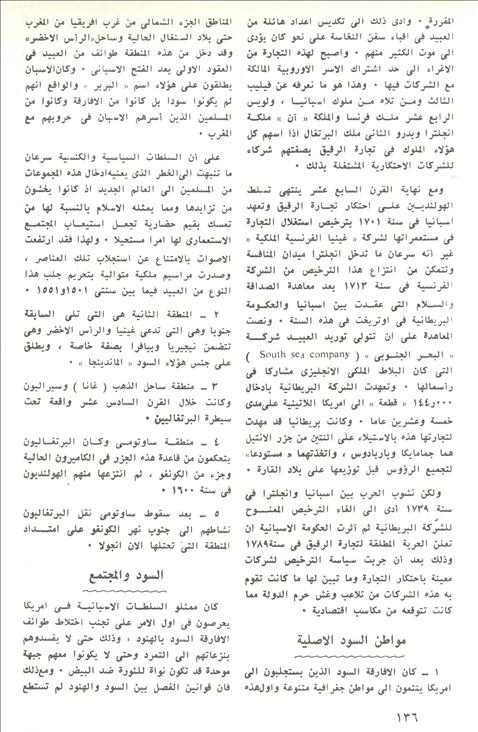 المقررة • وادى ذلك الى تكديس اعداد هائلة من
العبيد في اقباء سفن النخاسة على نحو كان يؤدى
الى موت الكثير منهم • واصبح لهذه التجارة من
الاغراء الى حد اشتراك الاسر الاوروبية المالكة
مع الشركات فيها • وهذا هو ما نعرفه عن فيليب
الثالث ومن تلاه من ملوك اسبانيا ، ولويس
الرابع عشر ملك فرنسا والملكة « آن » ملكة
انجلترا وبدرو الثاني ملك البرتغال اذا اسهم كل
هؤلاء الملوك في تجارة الرقيق بصفتهم شركاء
للشركات الاحتكارية المشتغلة بذلك •
ومع نهاية القرن السابع عشر ينتهي تسلط
الهولنديين على احتكار تجارة الرقيق وتعهد
اسبانيا في سنة ١٧٠١ بترخيص استغلال التجارة
في مستعمراتها لشركة « غينيا الفرنسية الملكية »
غير أنه سرعان ما تدخل انجلترا ميدان المنافسة
وتتمكن من انتزاع هذا الترخيص من الشركة
الفرنسية في سنة ١٧١٣ بعد معاهدة الصداقة
والسلام التى عقدت بين اسبانيا والحكومة
البريطانية في اوتريخت في هذه السنة • ونصت
المعاهدة على ان تتولى توريد العبيد شركة
« البحر الجنوبى » ( South sea company )
التي كان البلاط الملكي الانجليزي مشاركا في
رأسمالها • وتعهدت الشركة البريطانية بادخال
١٤٤٫٠٠٠ « قطعة » الى امريكا اللاتينية على مدى
خمسة وعشرين عاما • وكانت بريطانيا قد مهدت
لتجارتها هذه بالاستيلاء على اثنتين من جزر الانتيل
هما جمايكا وباربادوس ، واتخذتهما « مستودعا »
لتجميع الرؤوس قبل توزيعها على بلاد القارة •
ولكن نشوب الحرب بين اسبانيا وانجلترا في
سنة ١٧٣٩ أدى الى الغاء الترخيص الممنوح
للشركة البريطانية ثم آثرت الحكومة الاسبانية ان
تعلن الحرية المطلقة لتجارة الرقيق في سنة ١٧٨٩
وذلك بعد أن جربت سياسة الترخيص لشركات
معينة باحتكار التجارة وما تبين لها ما كانت تقوم
به هذه الشركات من تلاعب وغش حرم الدولة مما
كانت تتوقعه من مكاسب اقتصادية •
مواطن السود الاصلية
١ ـ كان الافارقة السود الذين يستجلبون الى
امريكا ينتمون الى مواطن جغرافية متنوعة واول هذه
المناطق الجزء الشمالي من غرب افريقيا من المغرب
حتى بلاد السنغال الحالية وساحل «الرأس الاخضر»
وقد دخل من هذه المنطقة طوائف من العبيد في
العقود الاولى بعد الفتح الاسبانى • وكان الاسبان
يطلقون على هؤلاء اسم « البربر » والواقع انهم
لم يكونوا سودا بل كانوا من الافارقة وكانوا من
المسلمين الذين أسرهم الاسبان في حروبهم مع
المغرب •
على أن السلطات السياسية والكنسية سرعان
ما تنبهت الى الخطر الذى يعنيه ادخال هذه المجموعات
من المسلمين الى العالم الجديد اذ كانوا يخشون
من تزايدها ومما يمثله الاسلام بالنسبة لها من
تمسك بقيم حضارية تجعل استيعاب المجتمع
الاستعمارى لها امرا مستحيلا • ولهذا فقد ارتفعت
الاصوات بالامتناع عن استجلاب تلك العناصر ،
وصدرت مراسيم ملكية متوالية بتحريم جلب هذا
النوع من العبيد فيما بين سنتى ١٥٠١ و ١٥٥١ •
٢ ـ المنطقة الثانية هي التى تلى السابقة
جنوبا وهى التى تدعى غينيا والرأس الاخضر وهى
تتضمن نيجيريا وبيافرا بصفة خاصة ، ويطلق
على جنس هؤلاء السود « الماندينجا » •
٣ ـ منطقة ساحل الذهب ( غانا ) وسيراليون
وكانت خلال القرن السادس عشر واقعة تحت
سيطرة البرتغاليين •
٤ ـ منطقة ساوتومى وكان البرتغاليون
يتحكمون من قاعدة هذه الجزر في الكاميرون الحالية
وجزء من الكونغو ، ثم انتزعها منهم الهولنديون
في سنة ١٦٠٠ •
٥ ـ بعد سقوط ساوتومى نقل البرتغاليون
نشاطهم الى جنوب نهر الكونغو على امتداد
المنطقة التى تحتلها الان انجولا •
السود والمجتمع
كان ممثلو السلطات الاسبانية في امريكا
يحرصون في اول الامر على تجنب اختلاط طوائف
الافارقة السود بالهنود ، وذلك حتى لا يفسدوهم
بنزعاتهم الى التمرد وحتى لا يكونوا معهم جبهة
موحدة قد تكون نواة للثورة ضد البيض • ومع ذلك
فان قوانين الفصل بين السود والهنود لم تستطع
١٣٦